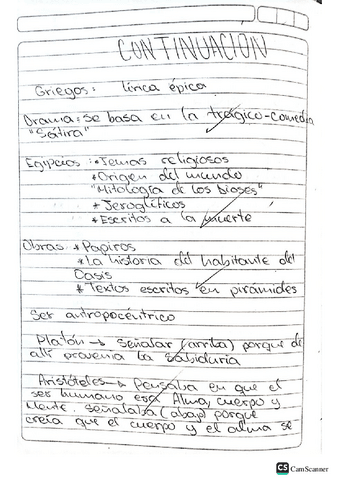 CONTINUACIÓN
Griegos: lírica épica
Drama: se basa en la trágico-comedia
"Sátira"
Egipcios: *Temas religiosos
*Origen del mundo
"Mitología de los Dioses"
*Jeroglíficos
*Escritos a la muerte
Obras *Papiros
*La historia del habitante del
Oasis
*Textos escritos en pirámides
Ser antropocéntrico
Platón → señalar (arriba) porque de
allí provenía la sabiduría
Aristóteles → Pensaba en que el
ser humano era Alma, cuerpo y
Mente. señalaba (abajo) porque
creía que el cuerpo y el alma se
CS CamScanner